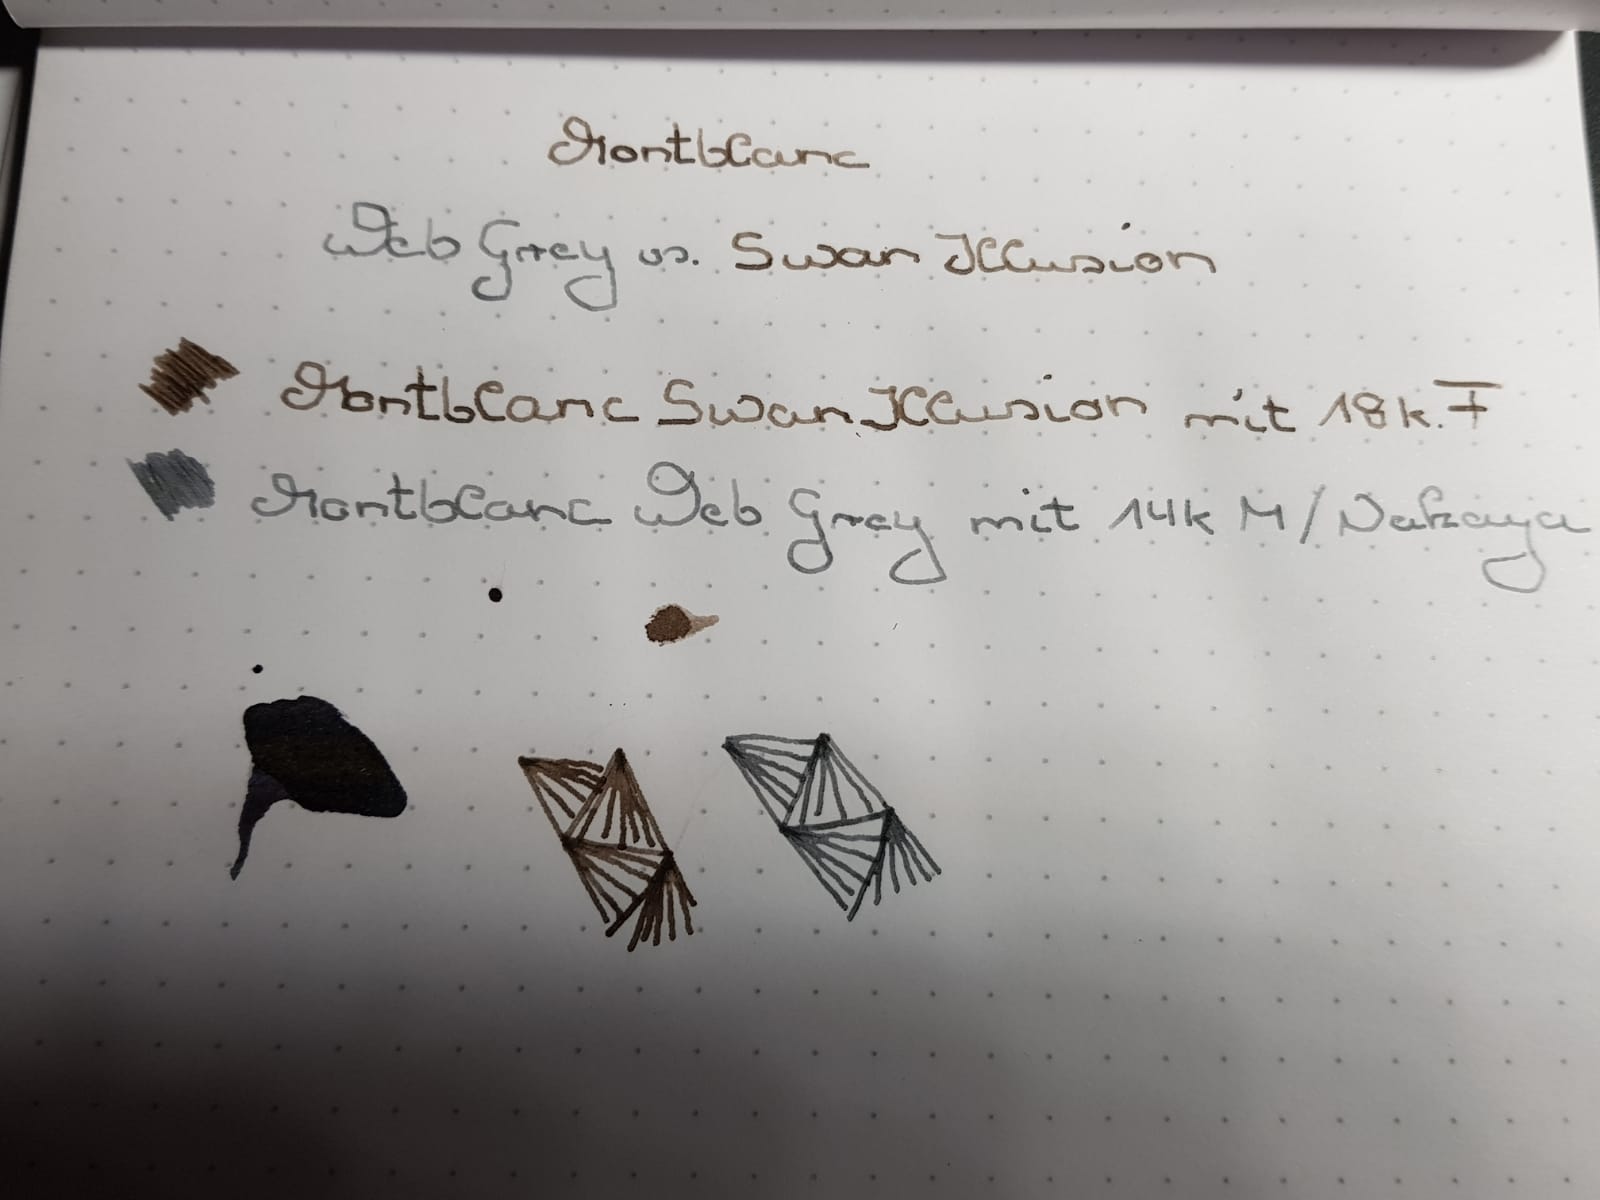 Montblanc
Web Grey vs. Swan Illusion
Montblanc Swan Illusion mit 18k. F
Montblanc Web Grey mit 14k M/Nakaya